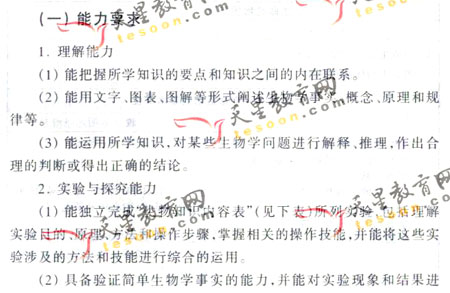 (一) 能力要求
1. 理解能力
(1) 能把握所学知识的要点和知识之间的内在联系。
(2) 能用文字、图表、图解等形式阐述生物学事实、概念、原理和规
律等。
(3) 能运用所学知识,对某些生物学问题进行解释、推理,作出合
理的判断或得出正确的结论。
2. 实验与探究能力
(1) 能独立完成“生物知识内容表”(见下表)所列实验,包括理解
实验目的、原理、方法和操作步骤,掌握相关的操作技能,并能将这些实
验涉及的方法和技能进行综合的运用。
(2) 具备验证简单生物学事实的能力,并能对实验现象和结果进
天星教育网
tesoon.com
天星教育网
tesoon.com
天星教育网
tesoon.com
天星教育网
tesoon.com